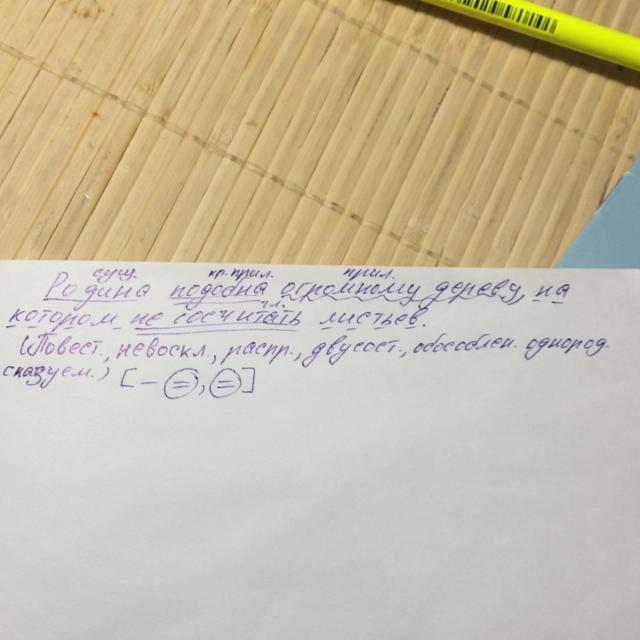 сущ. кр.прил. прил.
Родина подобна огромному дереву, на
гл.
котором не сосчитать листьев.
(Повест., невоскл., распр., двусост., обособлен. однород
сказуем.) [– (=), (=)]